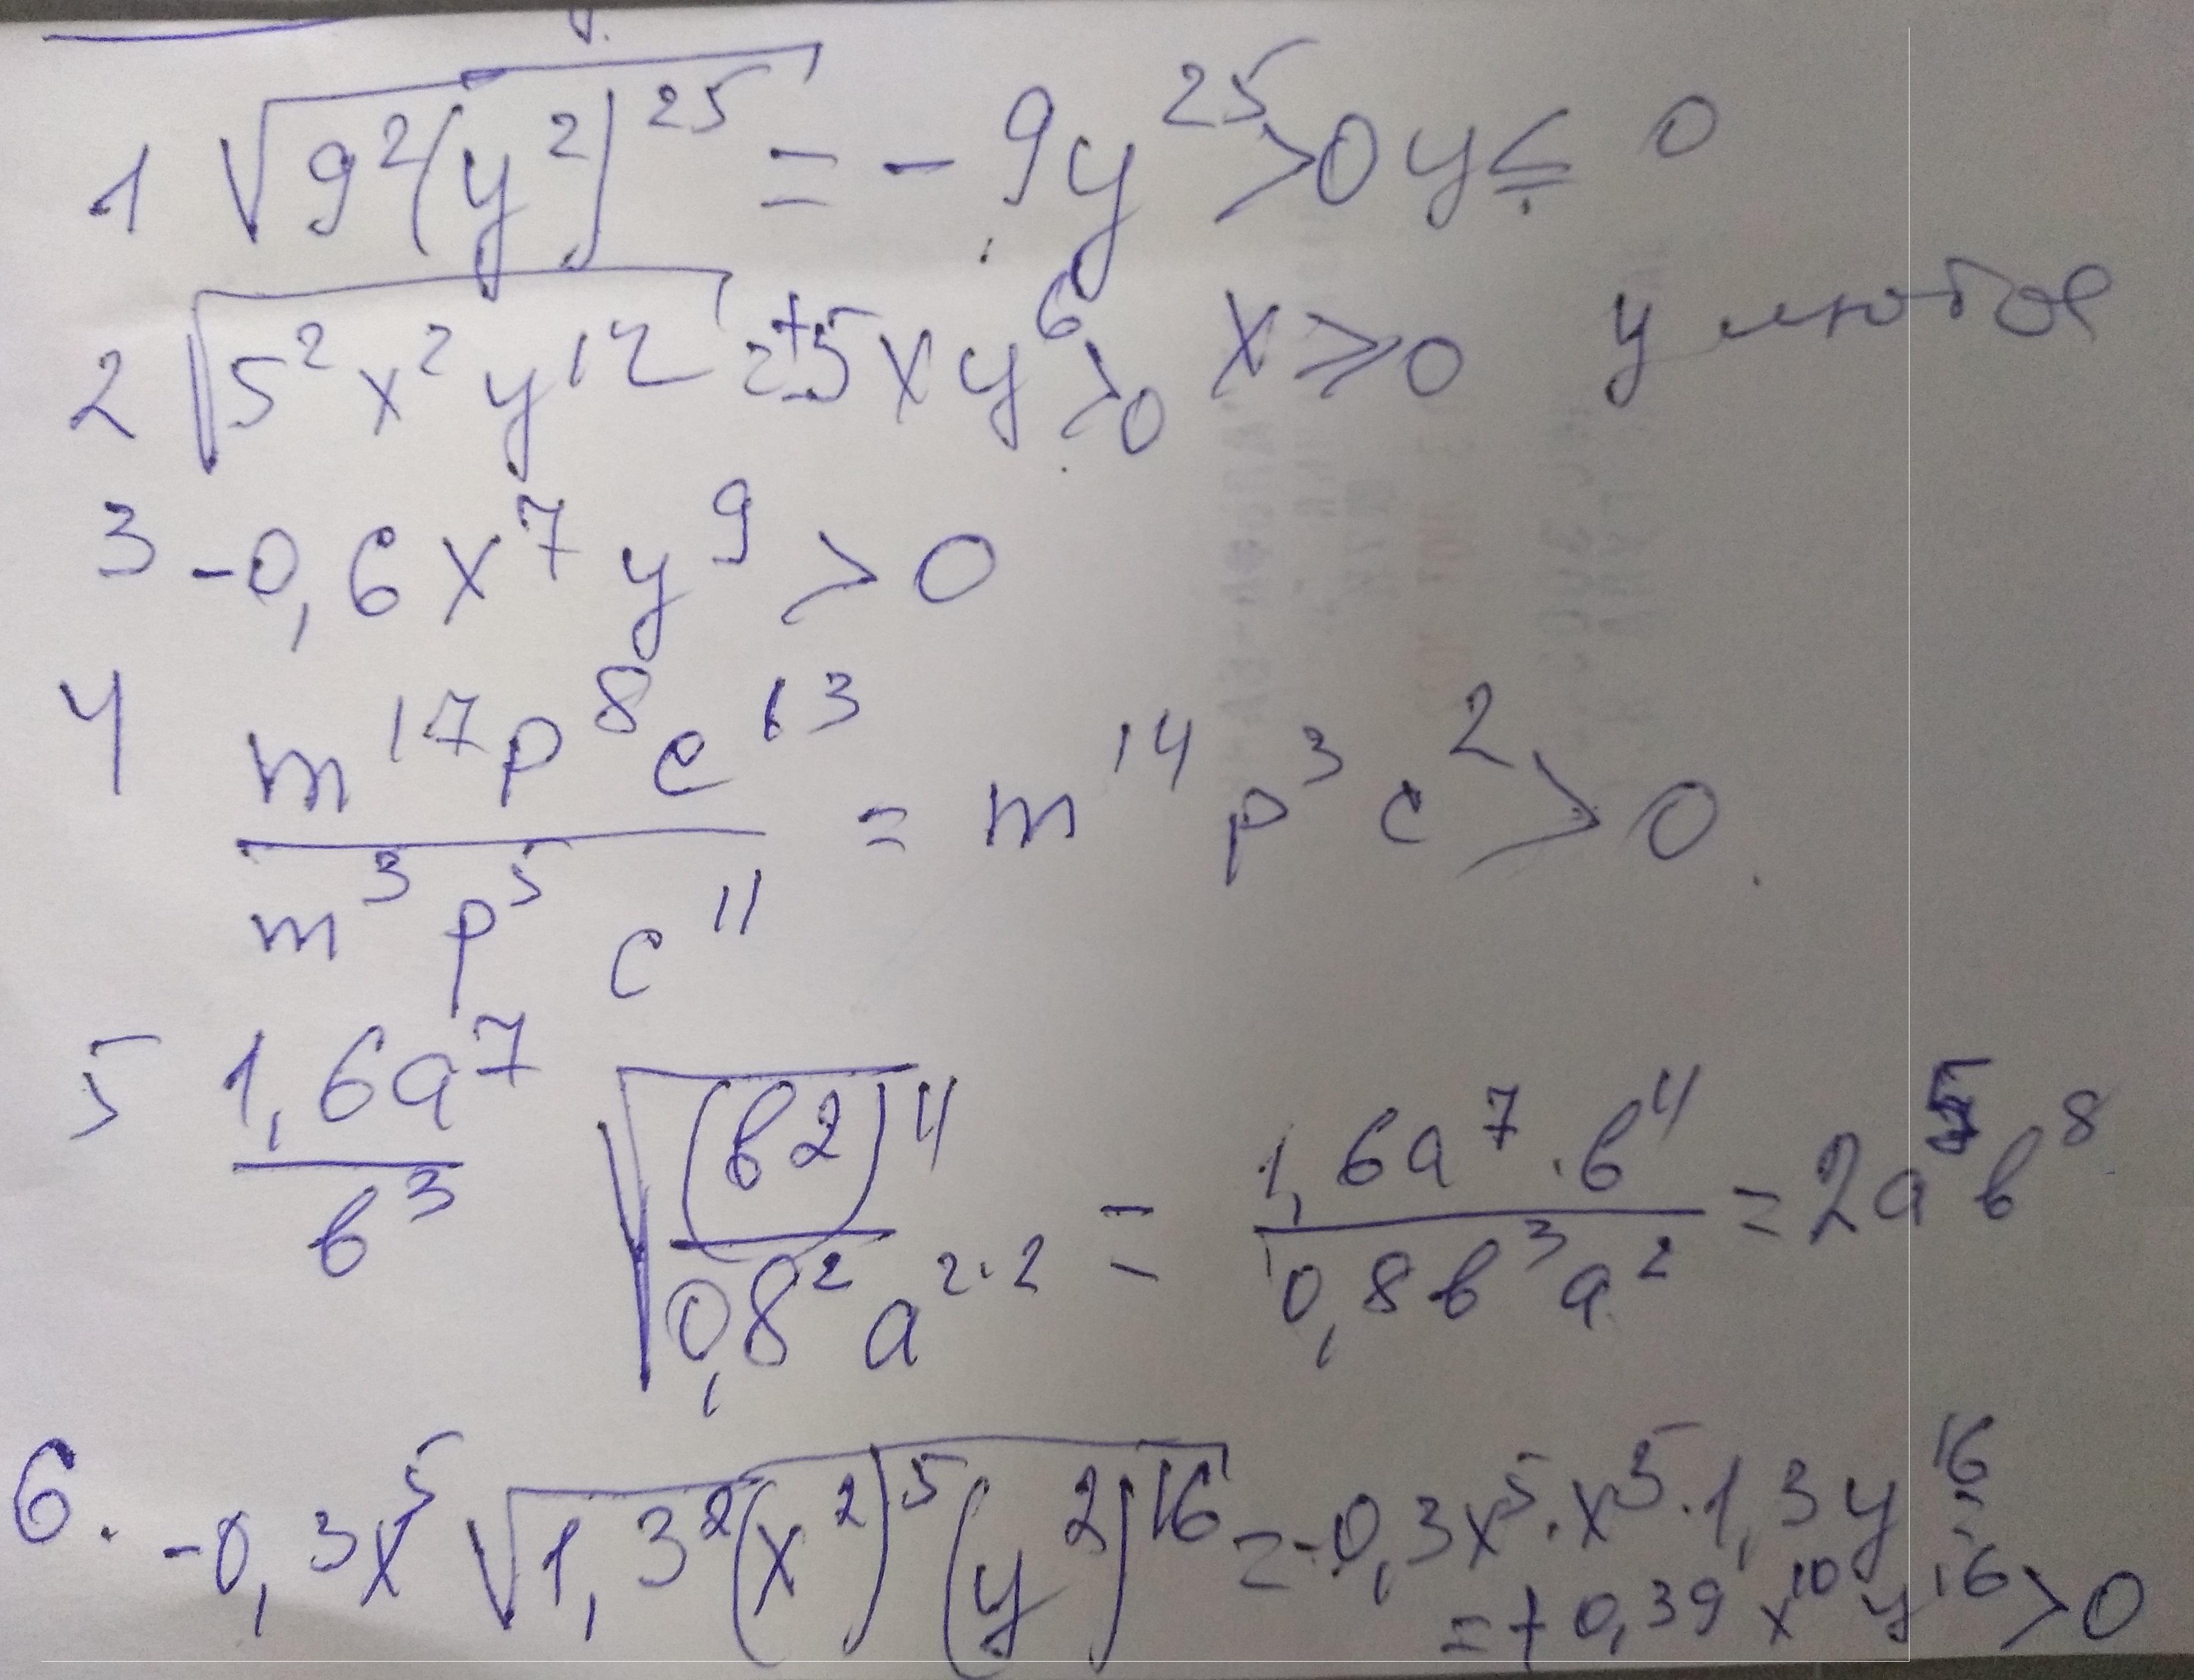 1 √(9²(y²)²⁵) = - 9y²⁵ >0 y ≤ 0
2 √(5²x²y¹²) = +5xy⁶ >0 x ⩾ 0 y любое
3 -0,6x⁷y⁹ > 0
4 m¹⁷p⁸c¹³ / m³p⁵c¹¹ = m¹⁴p³c² > 0
5 1,6a⁷/в³ √((в2)⁴/0,8²a²·²) = 1,6a⁷·в⁴/0,8в³a² = 2a⁵в⁸
6. -0,3x⁵ √(1,3²(x²)⁵(y²)¹⁶) = -0,3x⁵·x⁵·1,3y¹⁶
= + 0,39 x¹⁰y¹⁶ > 0